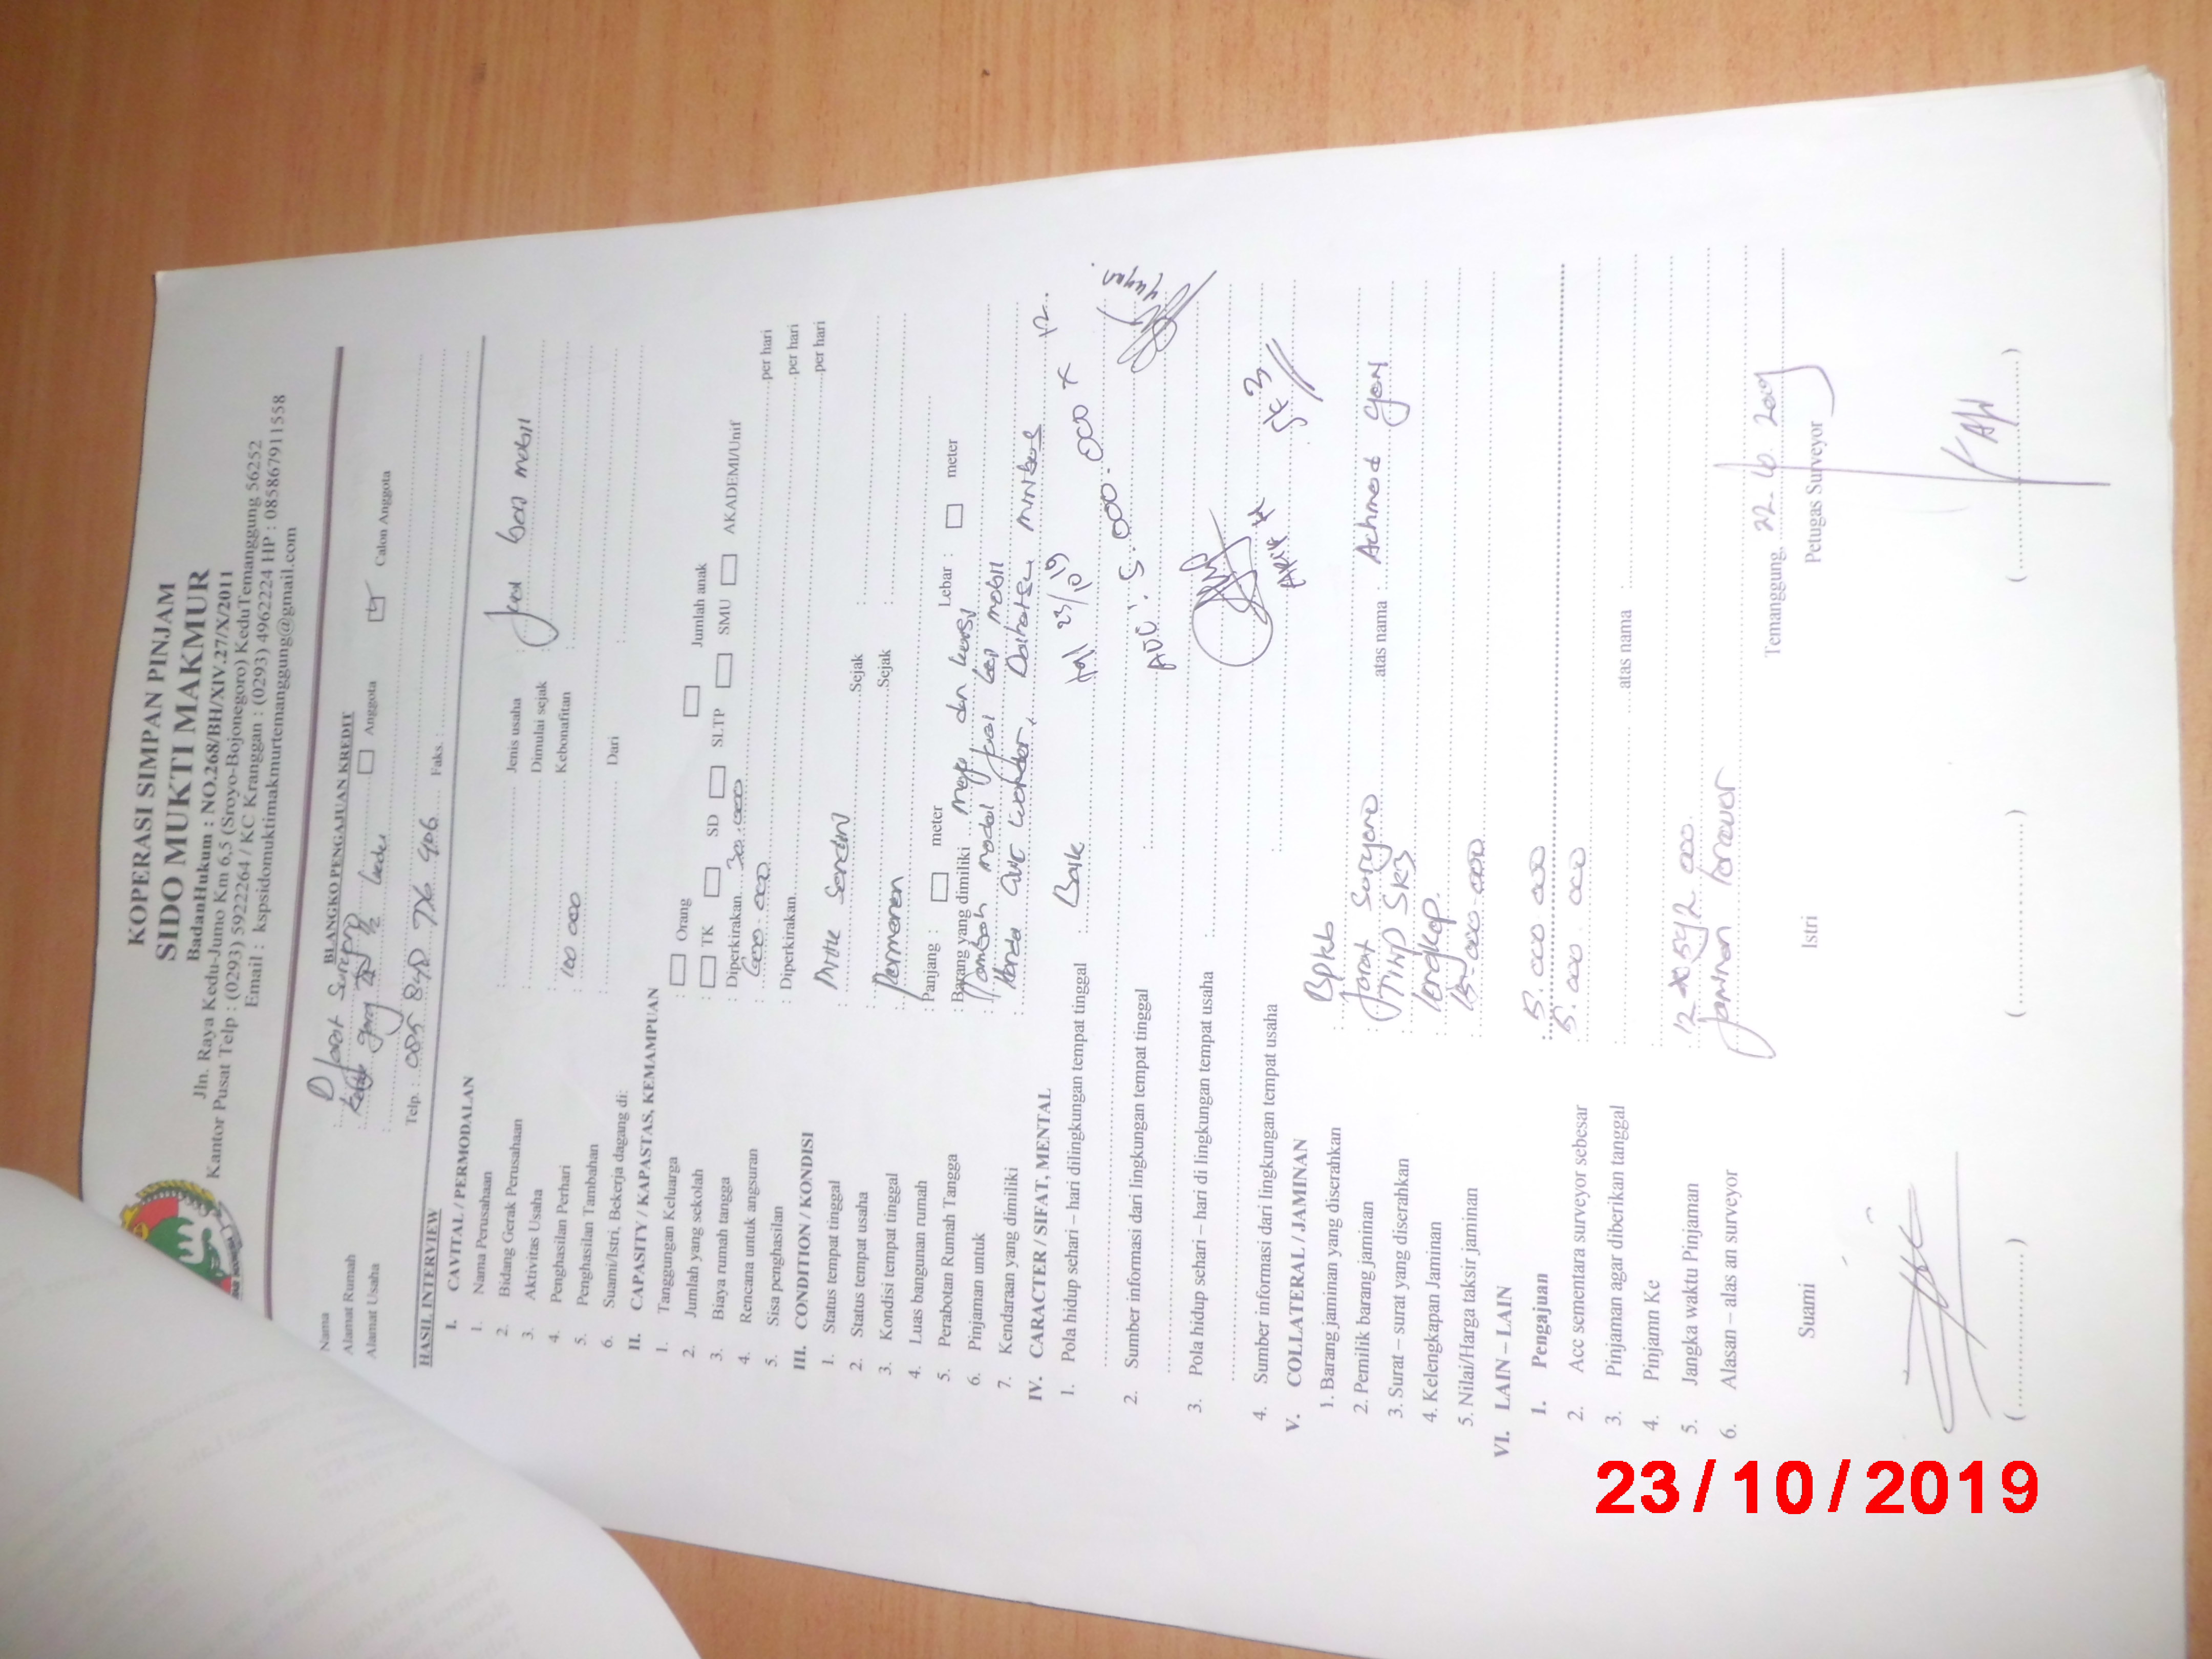 KOPERASI SIMPAN PINJAM
SIDO MUKTI MAKMUR
BadanHukum : NO.268/BH/XIV.27/X/2011
Jln. Raya Kedu-Jumo Km 6,5 (Sroyo-Bojonegoro) KeduTemanggung 56252
Kantor Pusat Telp : (0293) 5922264 / KC Kranggan : (0293) 4962224 HP : 085867911558
Email : kspsidomuktimakmurtemanggung@gmail.com
BLANGKO PENGAJUAN KREDIT
Nama :
Alamat Rumah : Kedu
Alamat Usaha : Anggota Calon Anggota
Telp. : Faks. :
HASIL INTERVIEW
I. CAVITAL / PERMODALAN
1. Nama Perusahaan :
2. Bidang Gerak Perusahaan : Jenis usaha : Jual beli mobil
3. Aktivitas Usaha : Dimulai sejak :
4. Penghasilan Perhari : 100 000 Kebonafitan :
5. Penghasilan Tambahan
6. Suami/Istri, Bekerja dagang di: Dari :
II. CAPASITY / KAPASTAS, KEMAMPUAN
1. Tanggungan Keluarga : Orang Jumlah anak
2. Jumlah yang sekolah : TK SD SLTP SMU AKADEMI/Unif
3. Biaya rumah tangga : Diperkirakan 30.000 per hari
4. Rencana untuk angsuran : per hari
5. Sisa penghasilan : Diperkirakan per hari
III. CONDITION / KONDISI
1. Status tempat tinggal : Sejak :
2. Status tempat usaha : Sejak :
3. Kondisi tempat tinggal : Permanen
4. Luas bangunan rumah : Panjang : meter Lebar : meter
5. Perabotan Rumah Tangga : Barang yang dimiliki meja dan kursi
6. Pinjaman untuk : Tambah modal jual beli mobil
7. Kendaraan yang dimiliki : Honda Daihatsu minibus
IV. CARACTER / SIFAT, MENTAL
1. Pola hidup sehari – hari dilingkungan tempat tinggal : Baik
23/10 19
ACC : 5.000.000 x 12
2. Sumber informasi dari lingkungan tempat tinggal :
3. Pola hidup sehari – hari di lingkungan tempat usaha :
4. Sumber informasi dari lingkungan tempat usaha :
V. COLLATERAL / JAMINAN
1. Barang jaminan yang diserahkan : Bpkb
2. Pemilik barang jaminan : atas nama : Achmad
3. Surat – surat yang diserahkan :
4. Kelengkapan Jaminan : lengkap
5. Nilai/Harga taksir jaminan : 15.000.000
VI. LAIN – LAIN
1. Pengajuan : 5.000 000
2. Acc sementara surveyor sebesar : 5.000.000
3. Pinjaman agar diberikan tanggal : atas nama :
4. Pinjamn Ke :
5. Jangka waktu Pinjaman :
6. Alasan – alas an surveyor : jaminan
Temanggung,
Suami Istri Petugas Surveyor
(....................) (....................) (....................)
23/10/2019